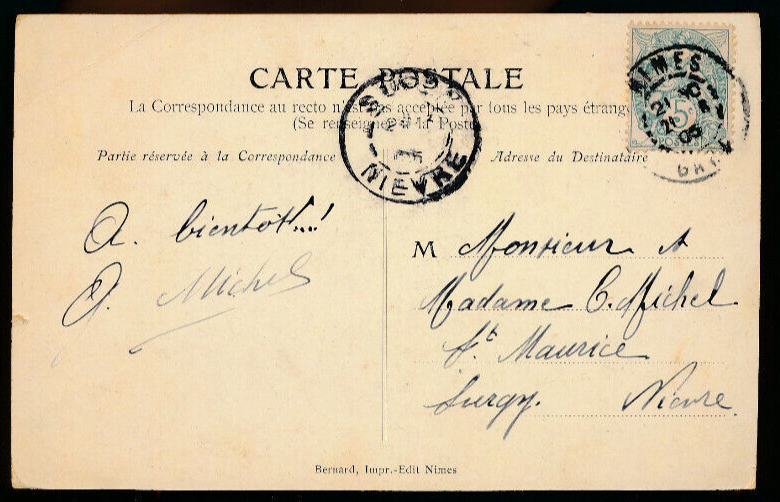 CARTE POSTALE
La Correspondance au recto n'est pas acceptée par tous les pays étrang
(Se renseigner à la Poste)
Partie réservée à la Correspondance
Adresse du Destinataire
NIMES
21
21
05
GARD
5c
NIEVRE
A. bientot!..!
A. Michel
M Monsieur &
Madame C. Michel
St Maurice
Surgy. Nievre
Bernard, Impr.-Edit Nimes